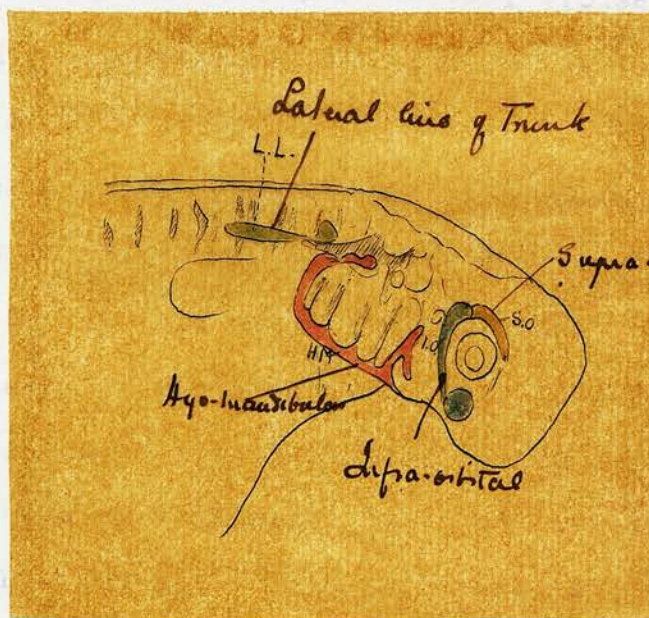 Lateral line of Trunk
L.L.
Supra-
S.O
I.O
HM
Hyo-mandibular
Infra-orbital